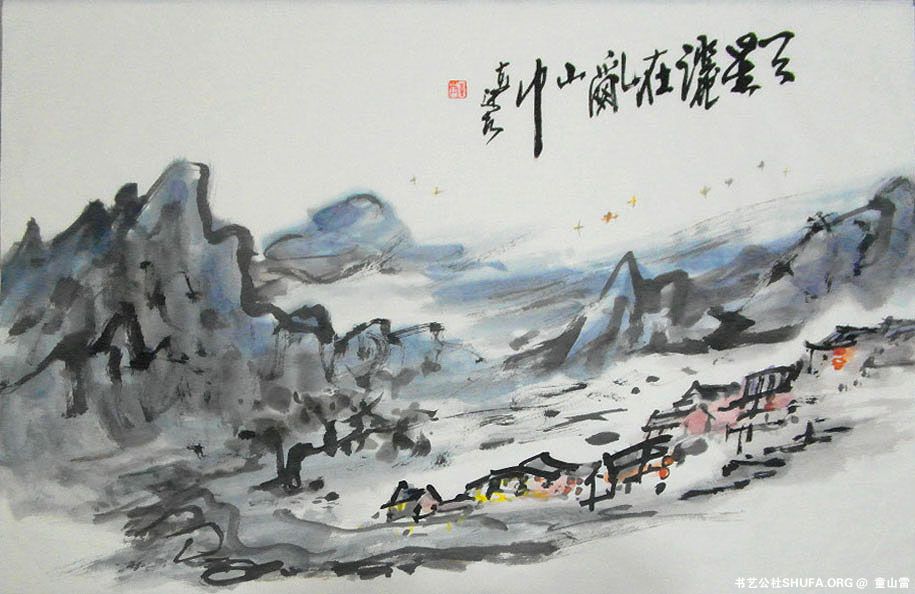 天星灑在亂山中
书艺公社SHUFA.ORG @ 童山雷